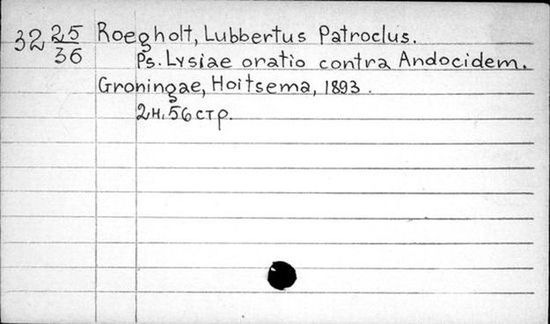 32 25/36 Roegholt, Lubbertus Patroclus.
Ps. Lysiae oratio contra Andocidem.
Groningae, Hoitsema, 1893.
2н. 56 стр.